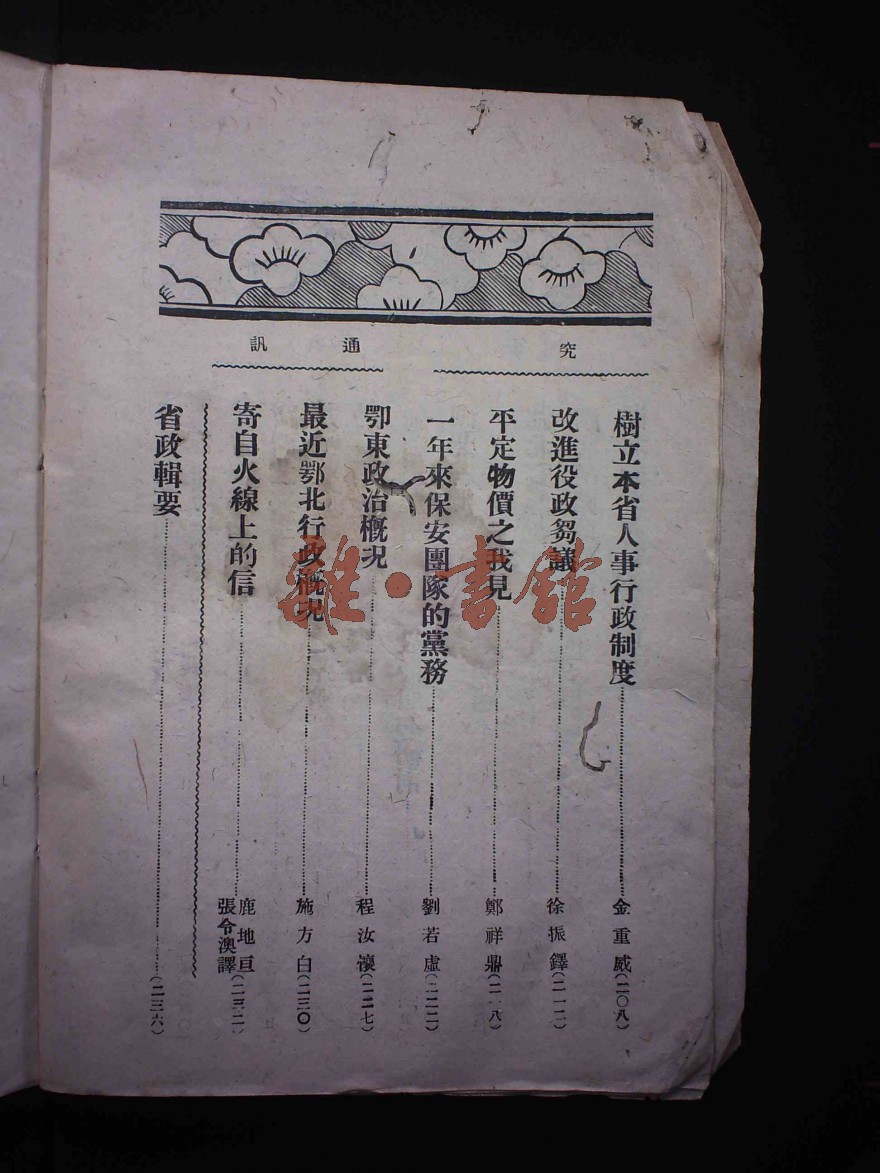 究
樹立本省人事行政制度……金重威(二〇八)
改進役政芻議……徐振鐸(二一二)
平定物價之我見……鄭祥鼎(二一八)
一年來保安團隊的黨務……劉若虛(二二二)
通訊
鄂東政治概況……程汝懷(二二七)
最近鄂北行政概况……施方白(二三〇)
寄自火線上的信……鹿地亘
張令澳譯(二三二)
省政輯要……(二三六)
雜·書館